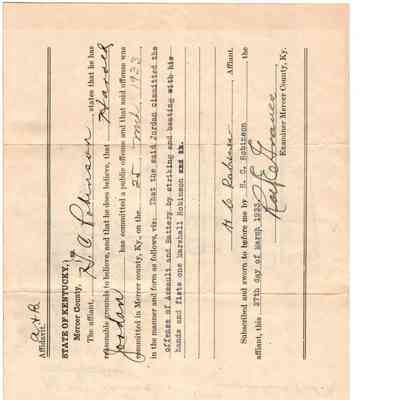 A & B
Affidavit.
STATE OF KENTUCKY,
Mercer County, } sct.
The affiant, H. C. Robinson states that he has
reasonable grounds to believe, and that he does believe, that Harold
Jordan has committed a public offense and that said offense was
committed in Mercer county, Ky. on the 25 Mch 1923
in the manner and form as follows, viz: That the said Jordan committed the
offense of Assault and Battery by striking and beating with his
hands and fists one Marshall Robinson
H C Robinson Affiant.
Subscribed and sworn to before me by H. C. Robinson the
affiant, this 27th day of March 1923.
Examiner Mercer County, Ky.